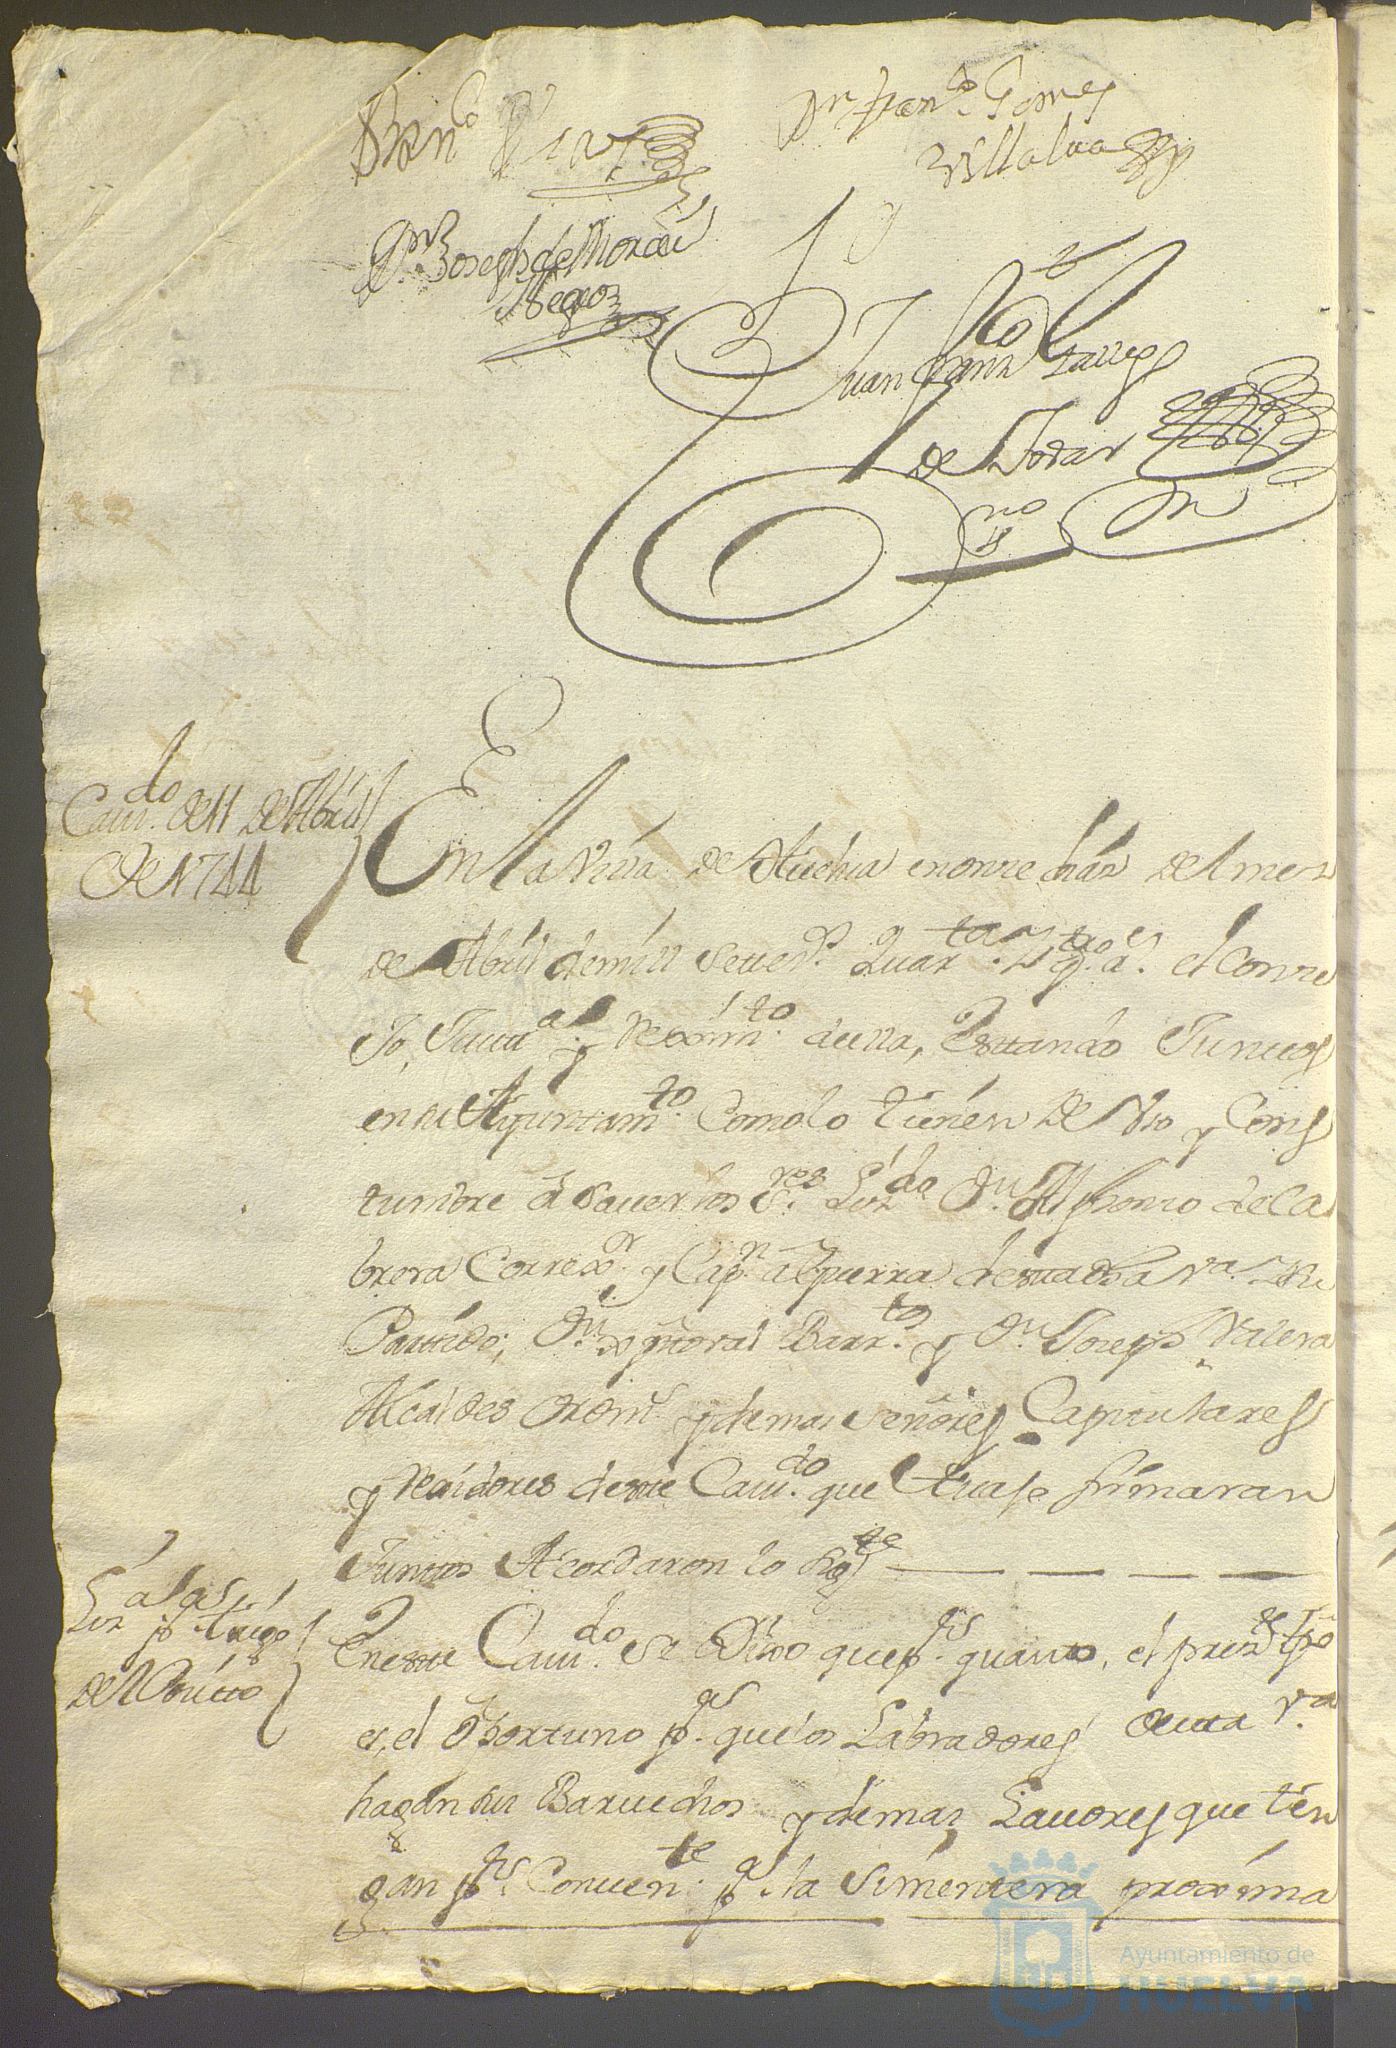 Dn Franco. Gomes
Villalva
Dn Joseph de Morav
Negro
Juan Franco
de Jodar
no
Caudo. de 11 de Abril
de 1744
En la Villa de Huelva en onze dias del mes
de Abril de mill settezs. quarta. y qtro. as. el Conze
Jo, Justa. y Reximto. della, estando Juntos
en su Ayuntamto. Como lo tienen de Uso y Cos
tumbre es a saver los Sres. Lizdo. Dn. Alphonso de Ca
brera Correxor. y Capn. a guerra desta dha va. y su
Partido; Dn. Xptoval Barrtos. y Dn. Joseph Valera
Alcaldes ordins. y demas señores Capitulares
y Rexidores deste Caudo. que avajo firmaran
Juntos Acordaron lo sigte
Liza a las
pa. trigo
del Posito
En este Caudo. se Dixo que pr. quanto, el presте tpo
es, el oportuno pa. que los Labradores desta va.
hagan sus Barvechos y demas Lavores que ten
gan pr. Convente. pa. la simentera proxima
Ayuntamiento de
HUELVA